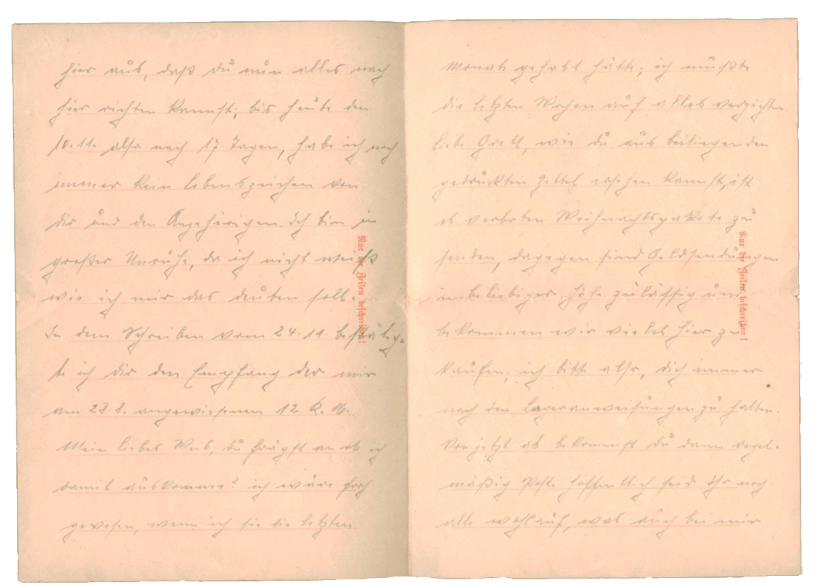 hier aus, daß du nun alles nach
hier richten kannst, bis heute den
10.11. also nach 17 Tagen, habe ich noch
immer kein Lebenszeichen von
dir und den Angehörigen. Ich bin in
großer Unruhe, da ich nicht weiß
wie ich mir das deuten soll.
In dem Schreiben vom 24.11. bestätig-
te ich dir den Empfang der mir
am 28.8. angewiesenen 12 R.M.
Mein liebes Weib, du frägst an ob ich
damit auskomme? ich wäre froh
gewesen, wenn ich sie die letzten
Monate gehabt hätte; ich mußte
die letzten Wochen auf alles verzichten.
Liebe Gretl, wie du aus beiliegenden
gedruckten Zettel ersehen kannst, ist
es verboten Weihnachtspakete zu
senden, dagegen sind Geldsendungen
in beliebiger Höhe zulässig und
bekommen wir vieles hier zu
kaufen; ich bitte also, dich immer
nach den Lageranweisungen zu halten.
Von jetzt ab bekommst du dann regel-
mäßig Post. Hoffentlich seid Ihr noch
alle wohlauf, was auch bei mir
Nur die Zeilen beschreiben!
Nur die Zeilen beschreiben!